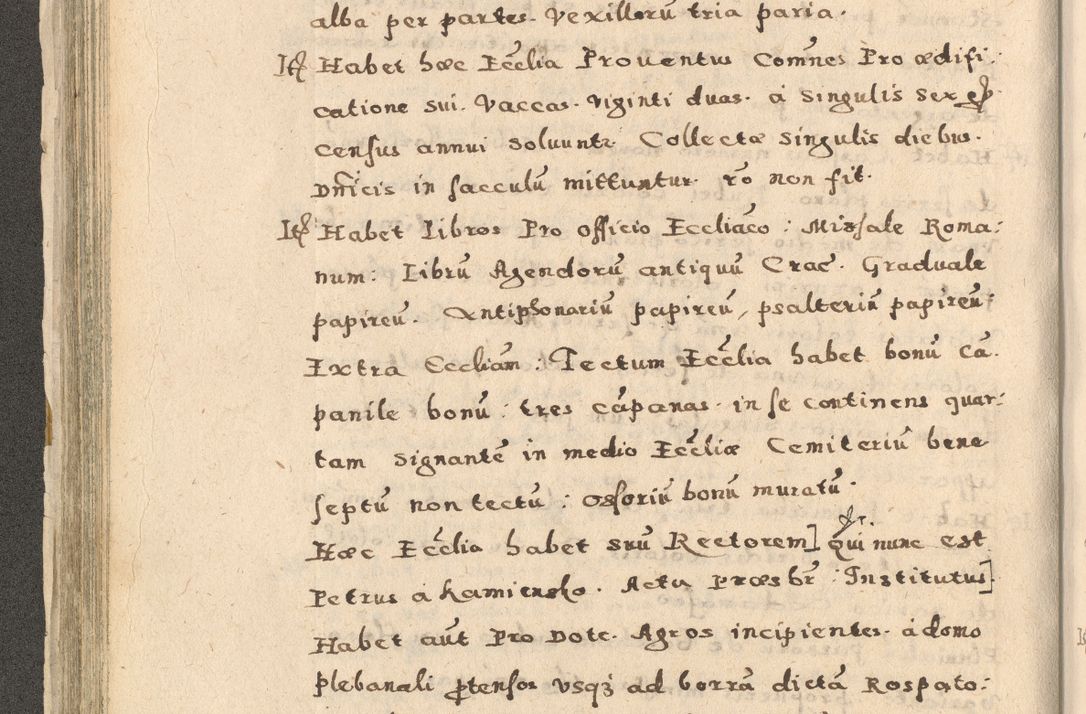 alba per partes. Vexillorū tria paria.
Itē Habet hæc Ecc̃lia Prouentus Com̃nes Pro ædifi:
catione sui. Vaccas. viginti duas. à singulis sex
census annui soluuntr. Collectæ singulis diebus.
Dñicis in sacculū mittuntur. rō non fit.
Itē Habet libros Pro officio Eccliãco: Missale Roma:
num: librū Agendorū antiquū Crac. Graduale
papireū. Antiphonariū papireū, psalteriū papireū;
Extra Eccliam̃: Tectum Ecc̃lia habet bonū Cā.
panile bonū: tres cāpanas. in se continens quar:
tam signantē in medio Ecc̃liæ Cemiteriū bene
septū non tectū: ossoriū bonū muratū.
Hæc Ecc̃lia habet suū Rectorem] qui nunc est
Petrus à Kamiensko. Actu Præsbr̃: Institutus]
Habet aūt Pro Dote. Agros incipientes. à domo
plebanali ꝓtensos usqꝫ ad borrā dictā Rospato: